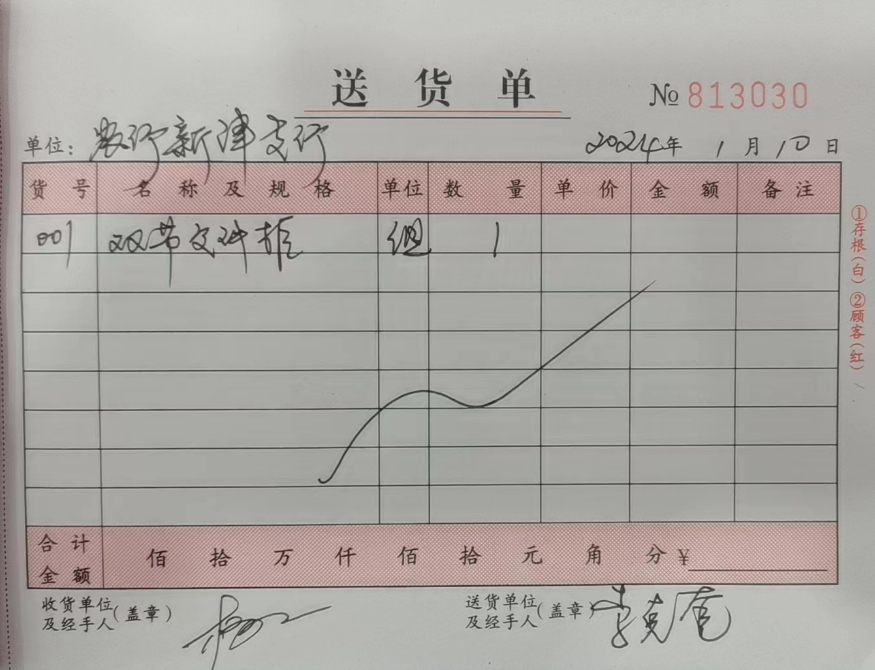 送货单 № 813030
单位：农行新津支行 2024年 1月10日
货号 名称及规格 单位 数量 单价 金额 备注
001 双节文件柜 组 1
合计金额 佰 拾 万 仟 佰 拾 元 角 分 ¥
收货单位及经手人（盖章）
送货单位及经手人（盖章）李克
①存根（白）②顾客（红）